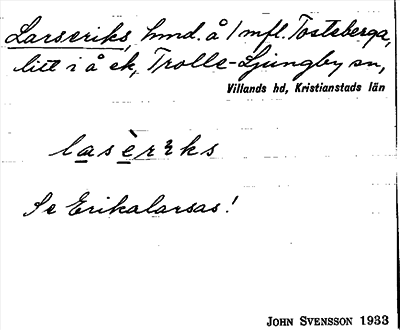 Larseriks, hmd. å 1 mfl. Tosteberga,
litt i å ek, Trolle-Ljungby sn,
Villands hd, Kristianstads län
lasèrıks
Se Erikalarsas!
JOHN SVENSSON 1933